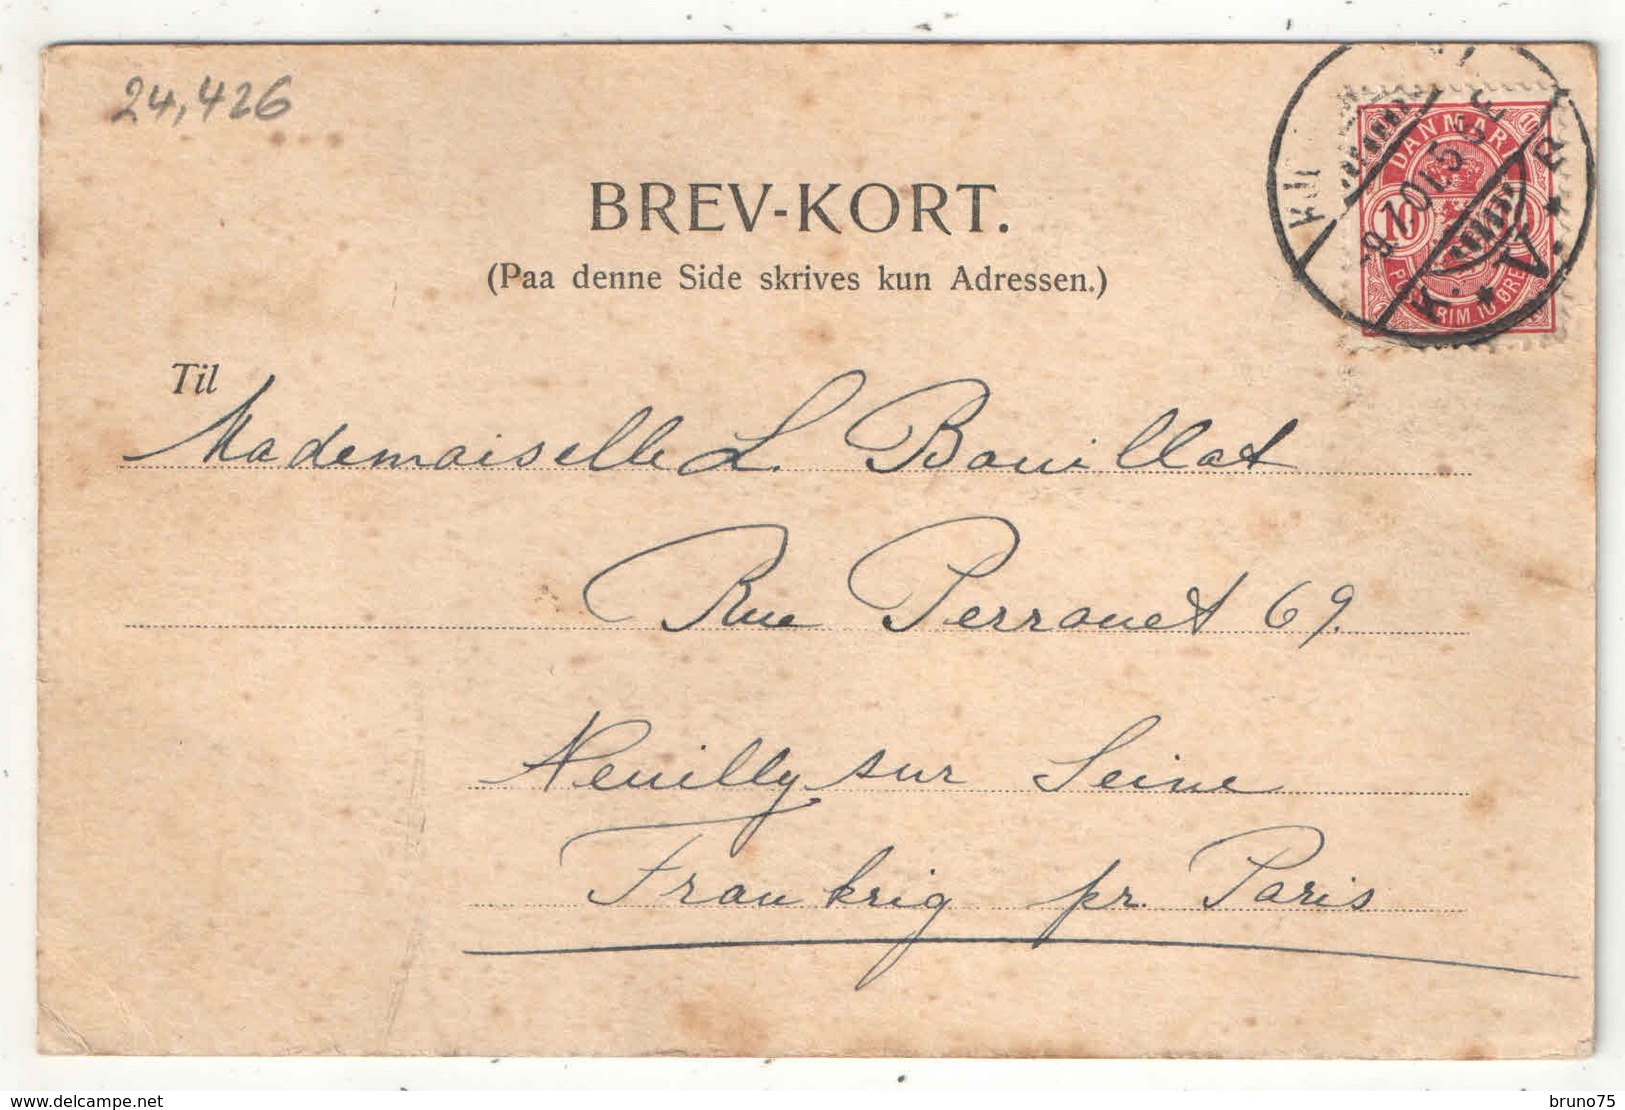 24,426
BREV-KORT.
(Paa denne Side skrives kun Adressen.)
DANMARK
10
Til
Mademaiselle L. Bouillat
Rue Perronet 69.
Neuilly sur Seine
Frankrig pr. Paris
www.delcampe.net
bruno75